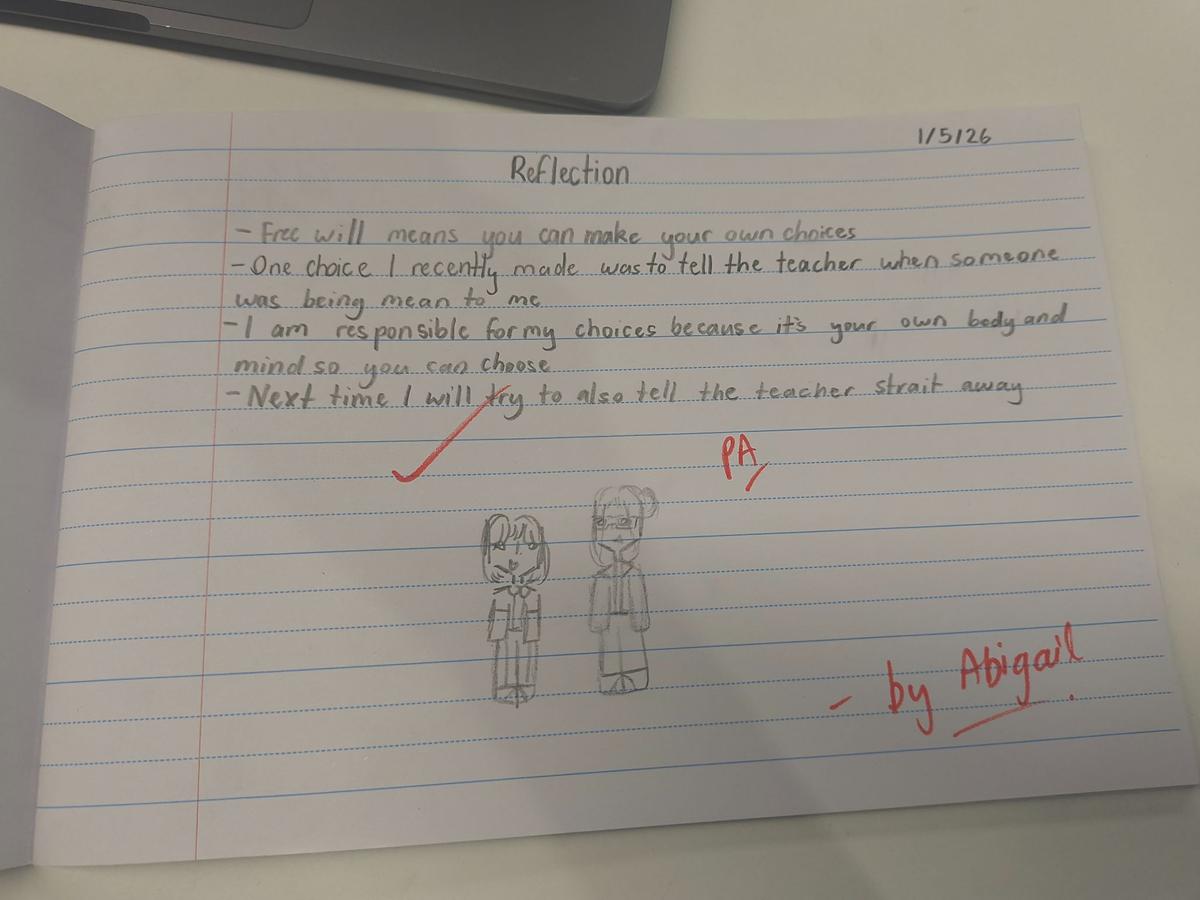 1/5/26
Reflection
- Free will means you can make your own choices
- One choice I recently made was to tell the teacher when someone
was being mean to me
- I am responsible for my choices because it's your own body and
mind so you can choose
- Next time I will try to also tell the teacher strait away
PA
- by Abigail.